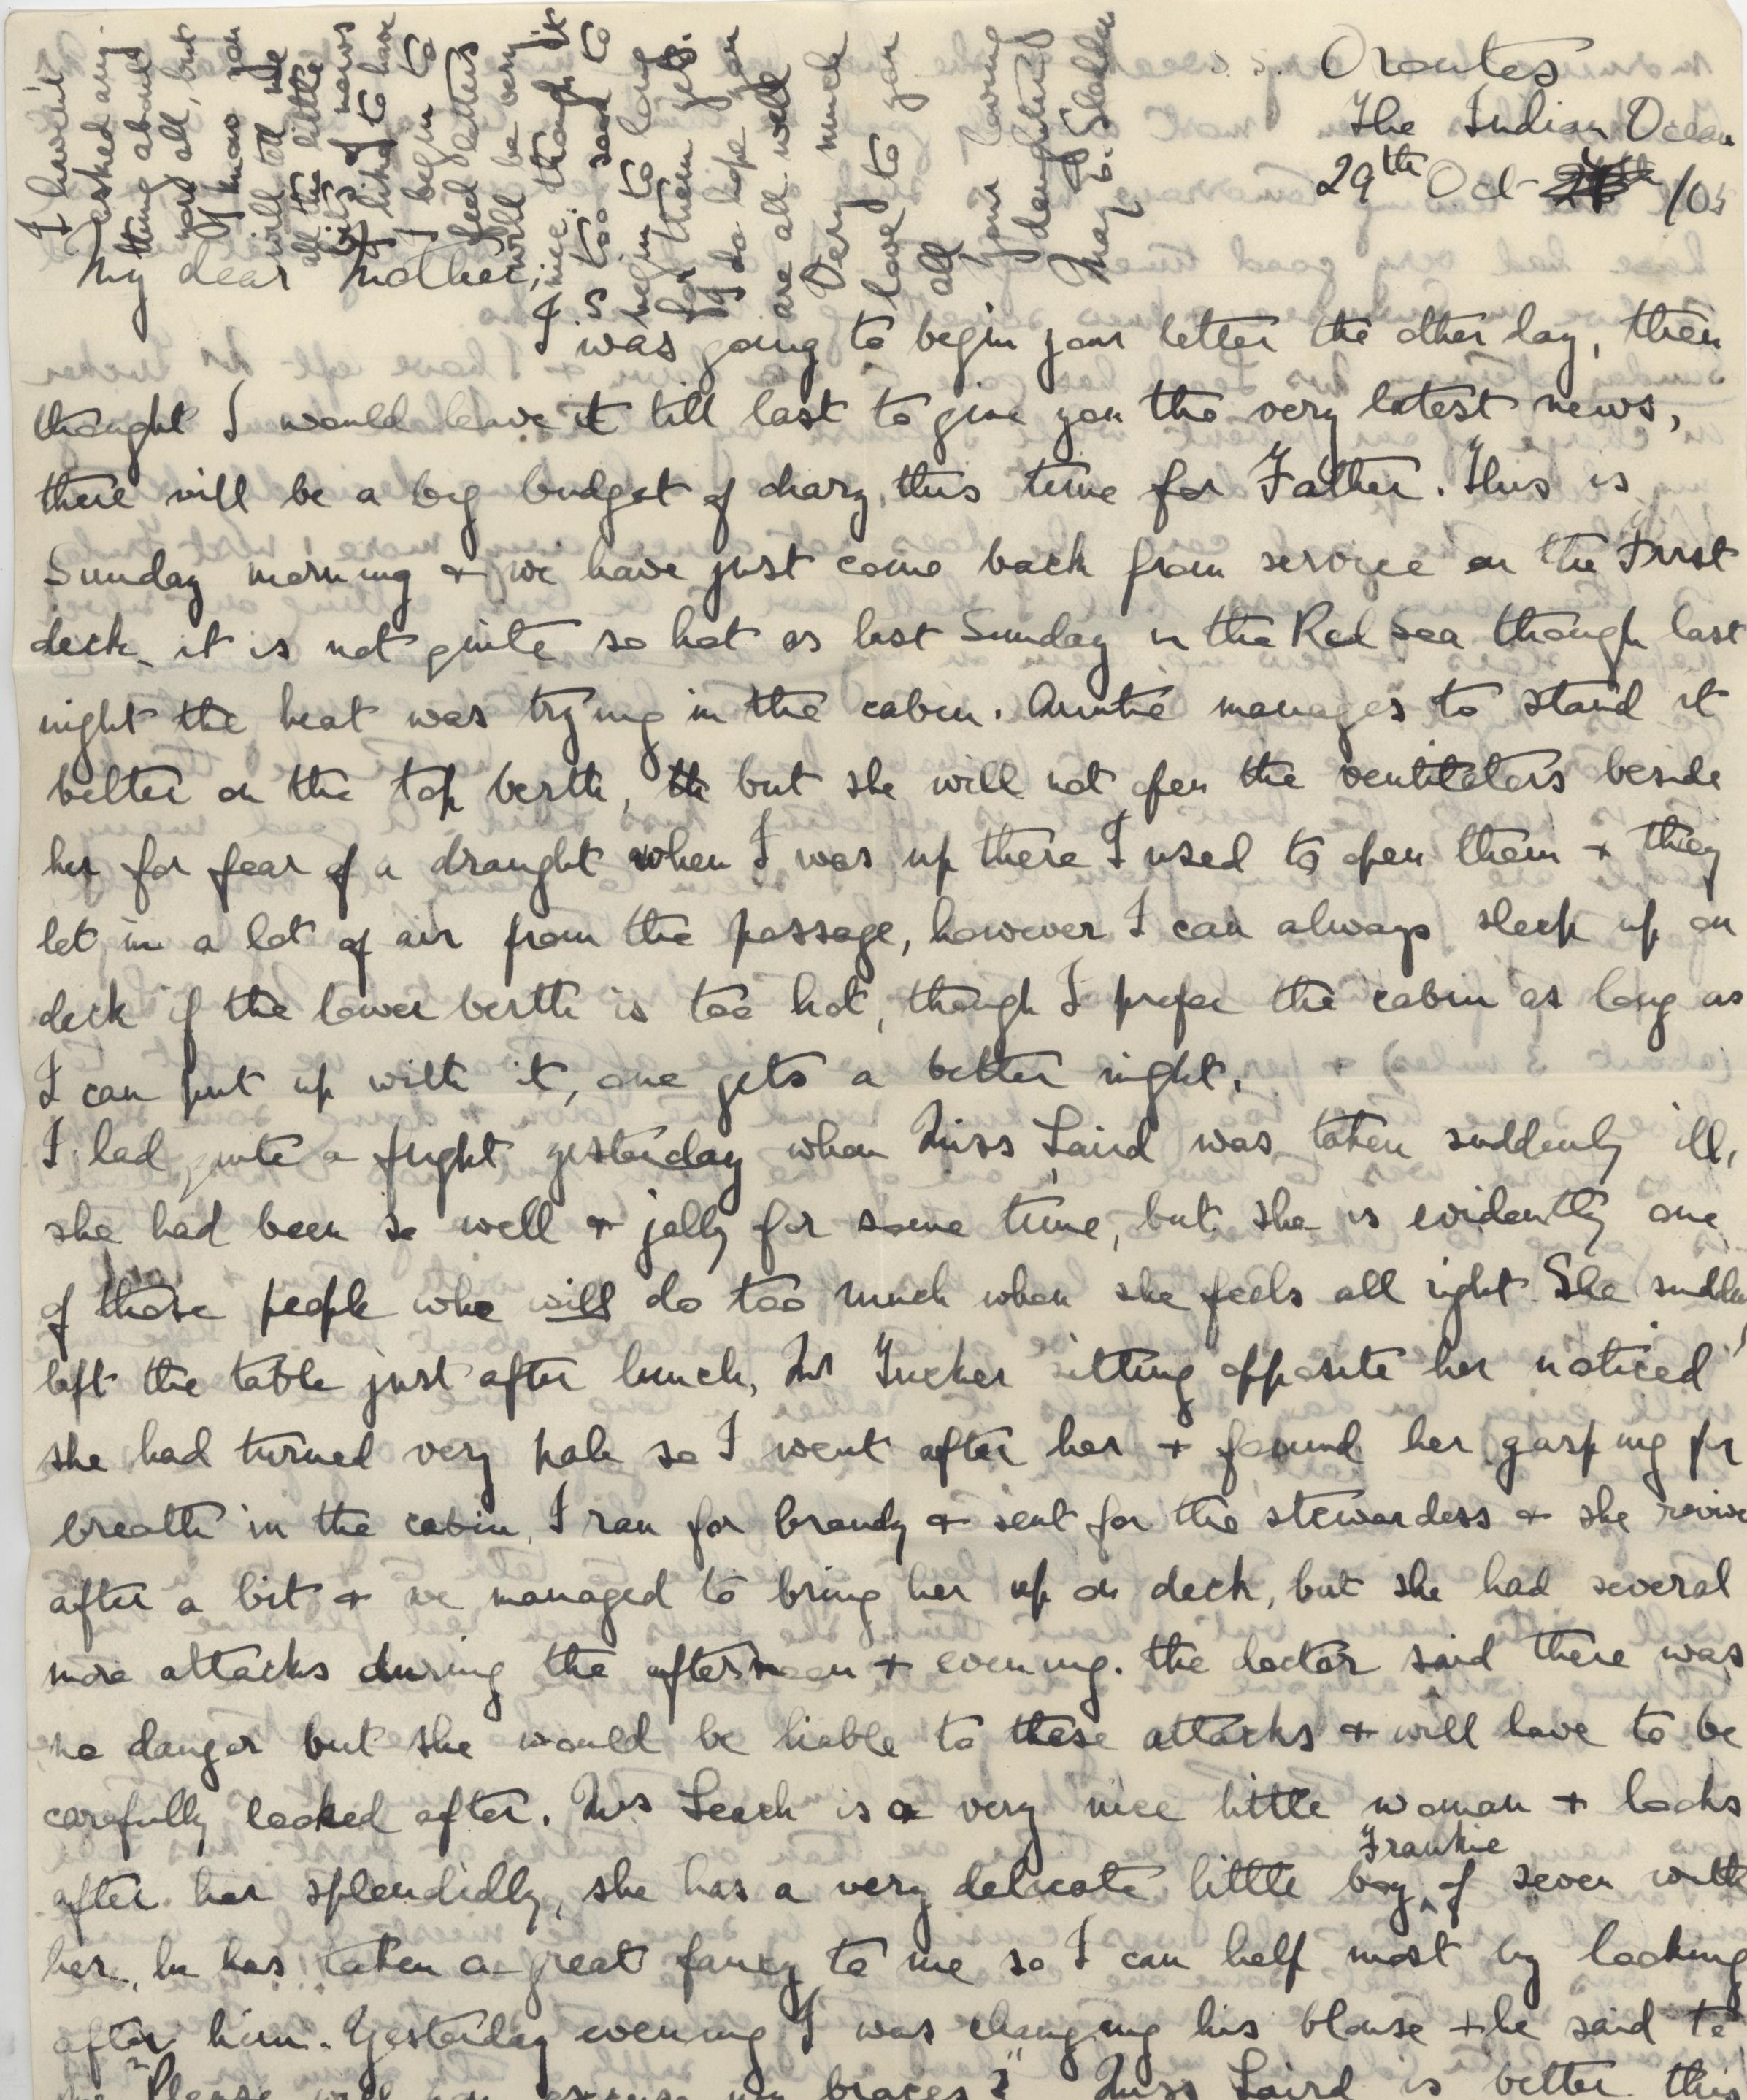 Orontes
The Indian Ocean
29th Oct /05
My dear Mother,
I was going to begin your letter the other day, then
thought I would leave it till last to give you the very latest news,
there will be a big budget of diary this time for Father. This is
Sunday morning + we have just come back from service on the First
deck, it is not quite so hot as last Sunday in the Red Sea though last
night the heat was trying in the cabin. Auntie manages to stand it
better on the top berth, but she will not open the ventilators beside
her for fear of a draught when I was up there I used to open them + they
let in a lot of air from the passage, however I can always sleep up on
deck if the lower berth is too hot, though I prefer the cabin as long as
I can put up with it, one gets a better night.
I had quite a fright yesterday when Miss Laird was taken suddenly ill,
she had been so well + jolly for some time, but she is evidently one
of those people who will do too much when she feels all right. She sudden
left the table just after lunch, Mr Tucker sitting opposite her noticed
she had turned very pale so I went after her + found her gasping for
breath in the cabin, I ran for brandy + sent for the stewardess + she revive
after a bit + we managed to bring her up on deck, but she had several
more attacks during the afternoon + evening. The doctor said there was
no danger but she would be liable to these attacks + will have to be
carefully looked after. Mrs Leach is a very nice little woman + looks
after her splendidly, she has a very delicate little boy, Frankie of seven with
her, he has taken a great fancy to me so I can help most by looking
after him. Yesterday evening I was changing his blouse + he said to
me "Please will you excuse my braces?" Miss Laird is better this
I haven't
asked any
thing about
you all, but
you know you
will tell me
all the little
bits of news
I like to have
I begin to
feel letters
will be very
nice, though it
is too soon to
begin to long
for them yet.
I do hope you
are all well
Very much
love to you
all
Your loving
daughter
May B.